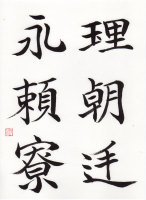 理朝迁
永頼寮